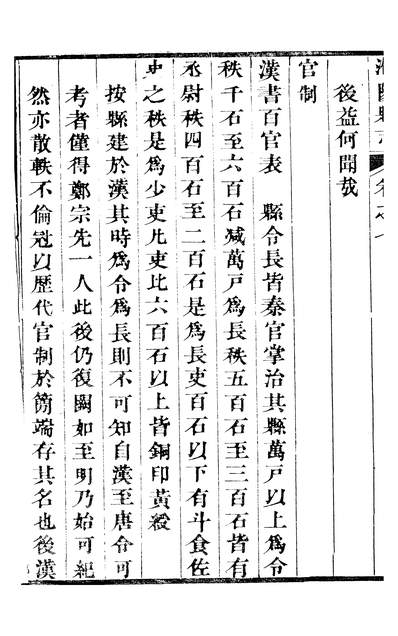 後益何聞哉
官制
漢書百官表　縣令長皆秦官掌治其縣萬戸以上爲令
秩千石至六百石减萬戸爲長秩五百石至三百石皆有
丞尉秩四百石至二百石是爲長吏百石以下有斗食佐
史之秩是爲少吏凡吏比六百石以上皆銅印黃綬
按縣建於漢其時爲令爲長則不可知自漢至唐令可
考者僅得鄭宗先一人此後仍復闕如至明乃始可紀
然亦散軼不倫冠以歷代官制於簡端存其名也後漢